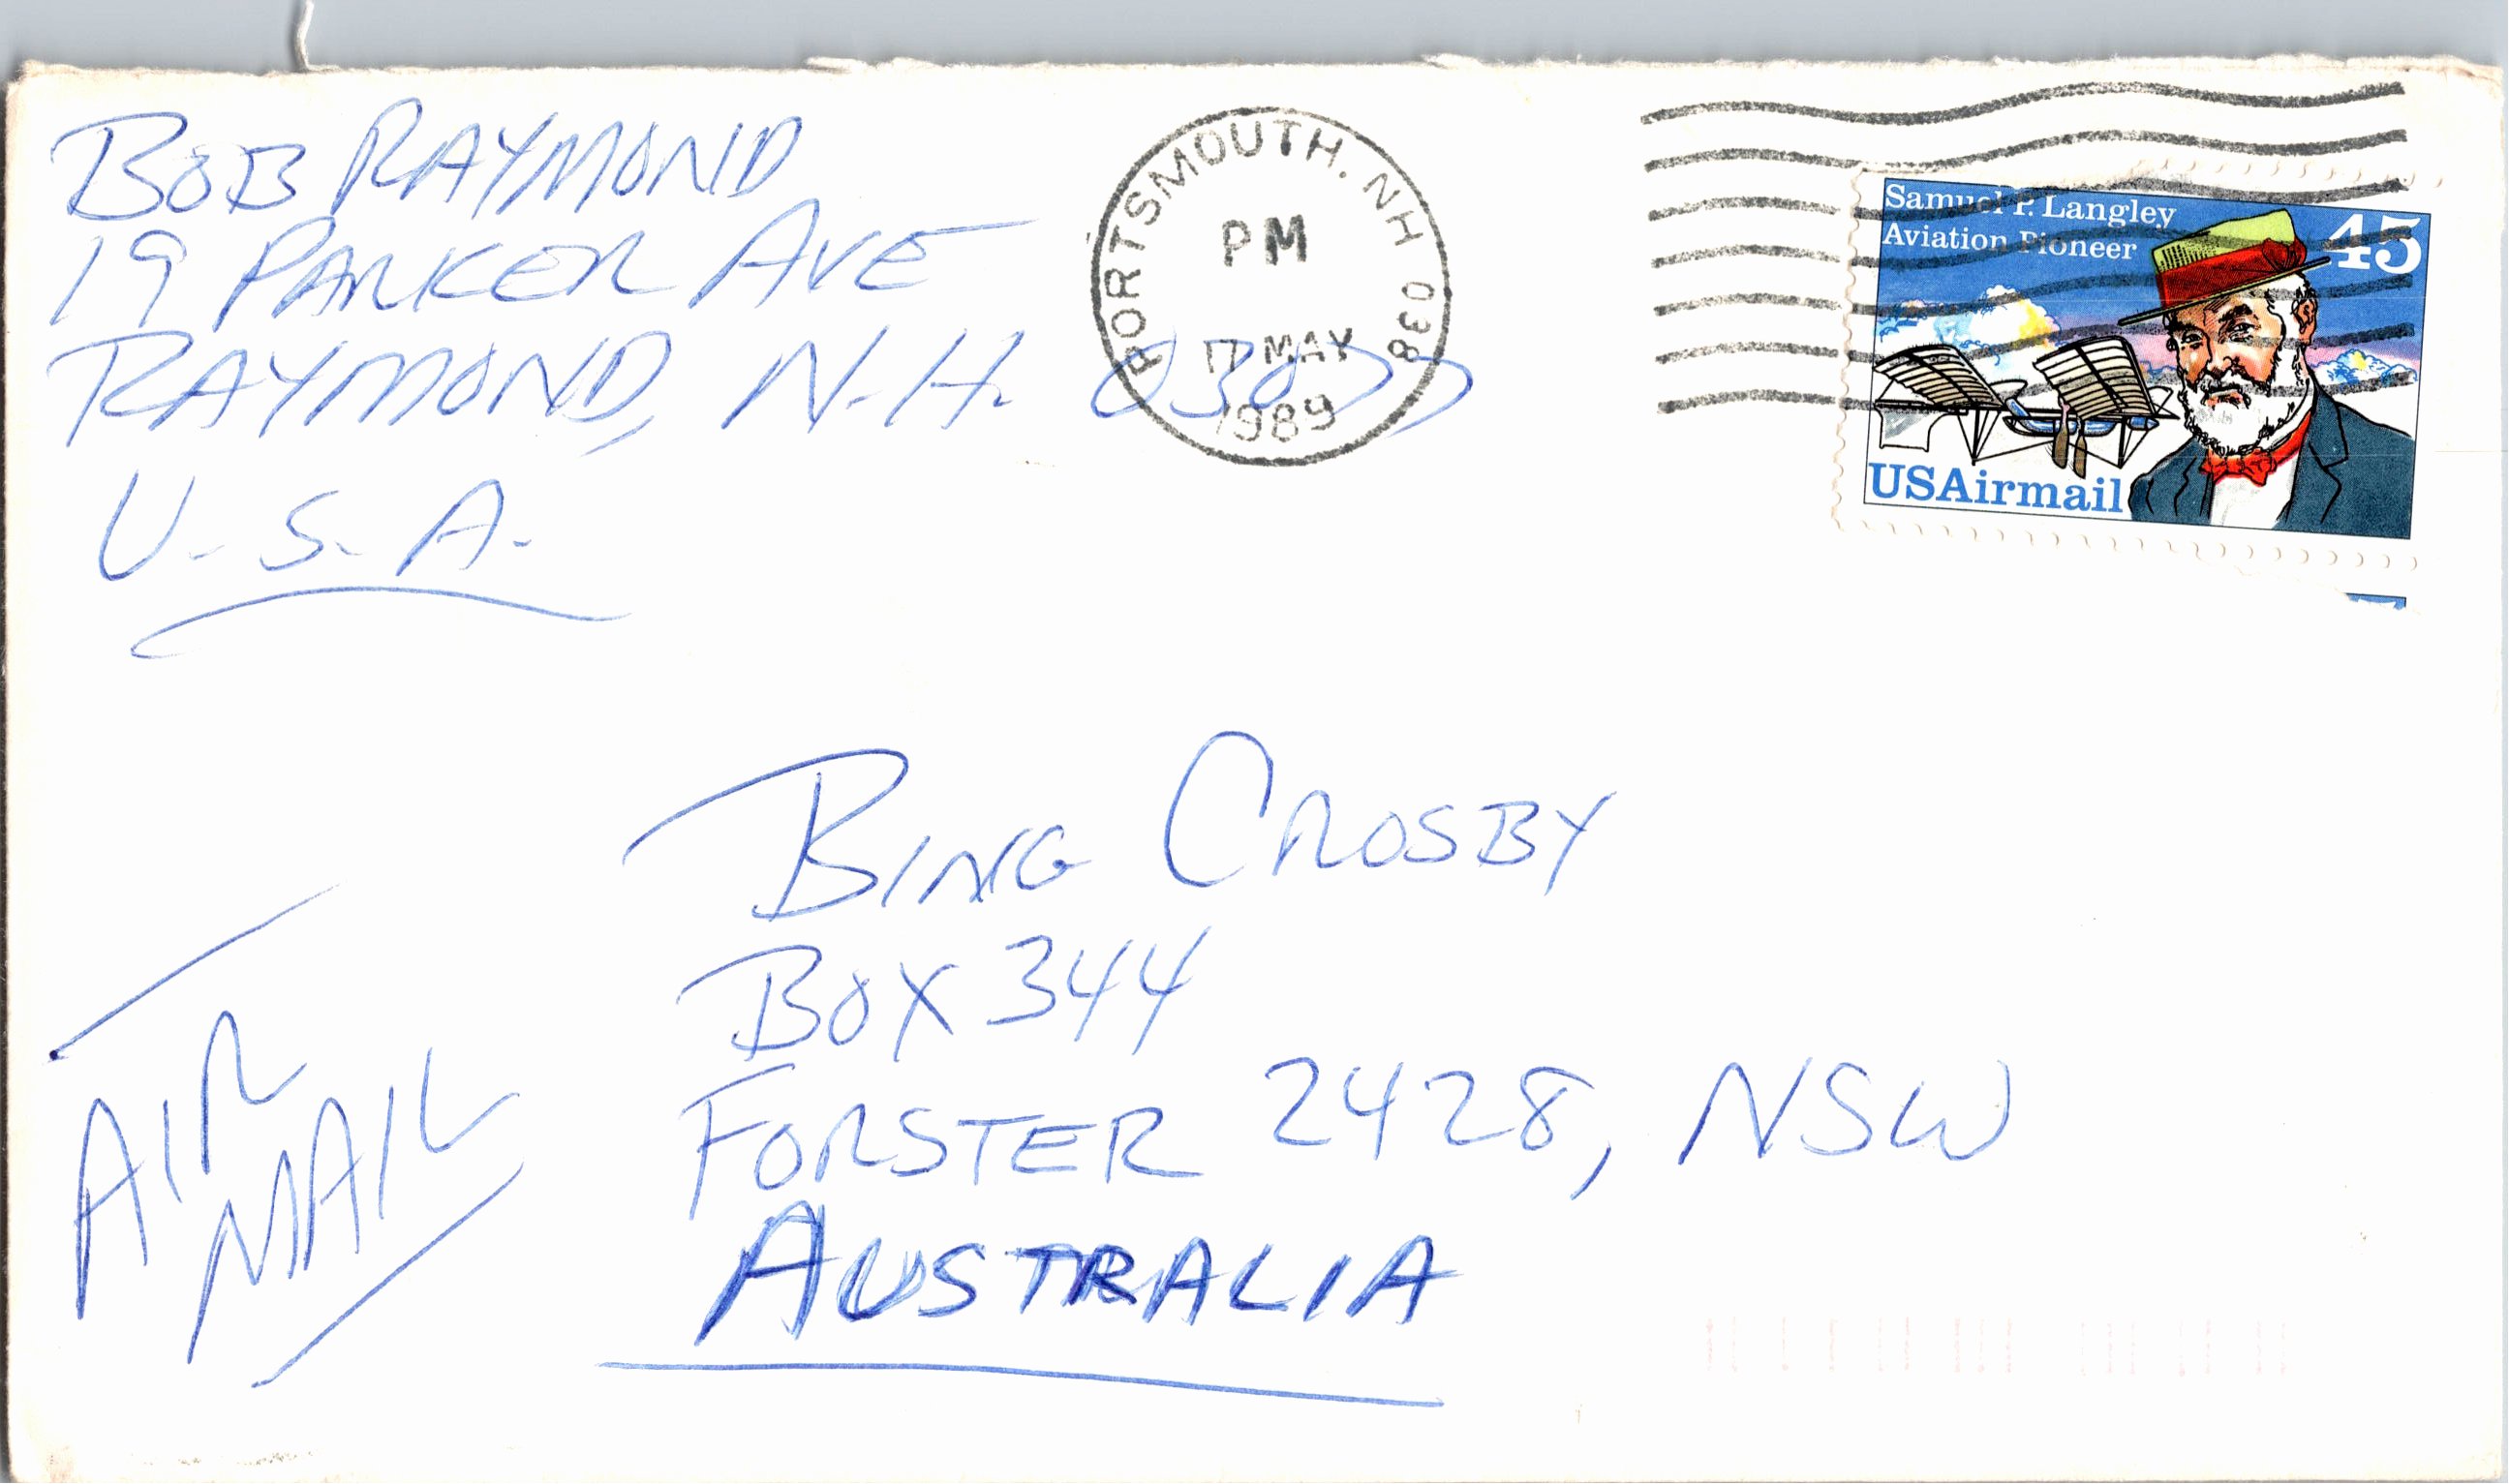 BOB RAYMOND
19 PARKER AVE
RAYMOND, N.H. 03077
U.S.A.
PORTSMOUTH, NH 038
PM
17 MAY
1989
Samuel P. Langley
Aviation Pioneer
45
USAirmail
BING CROSBY
BOX 344
FORSTER 2428, NSW
AUSTRALIA
AIR
MAIL